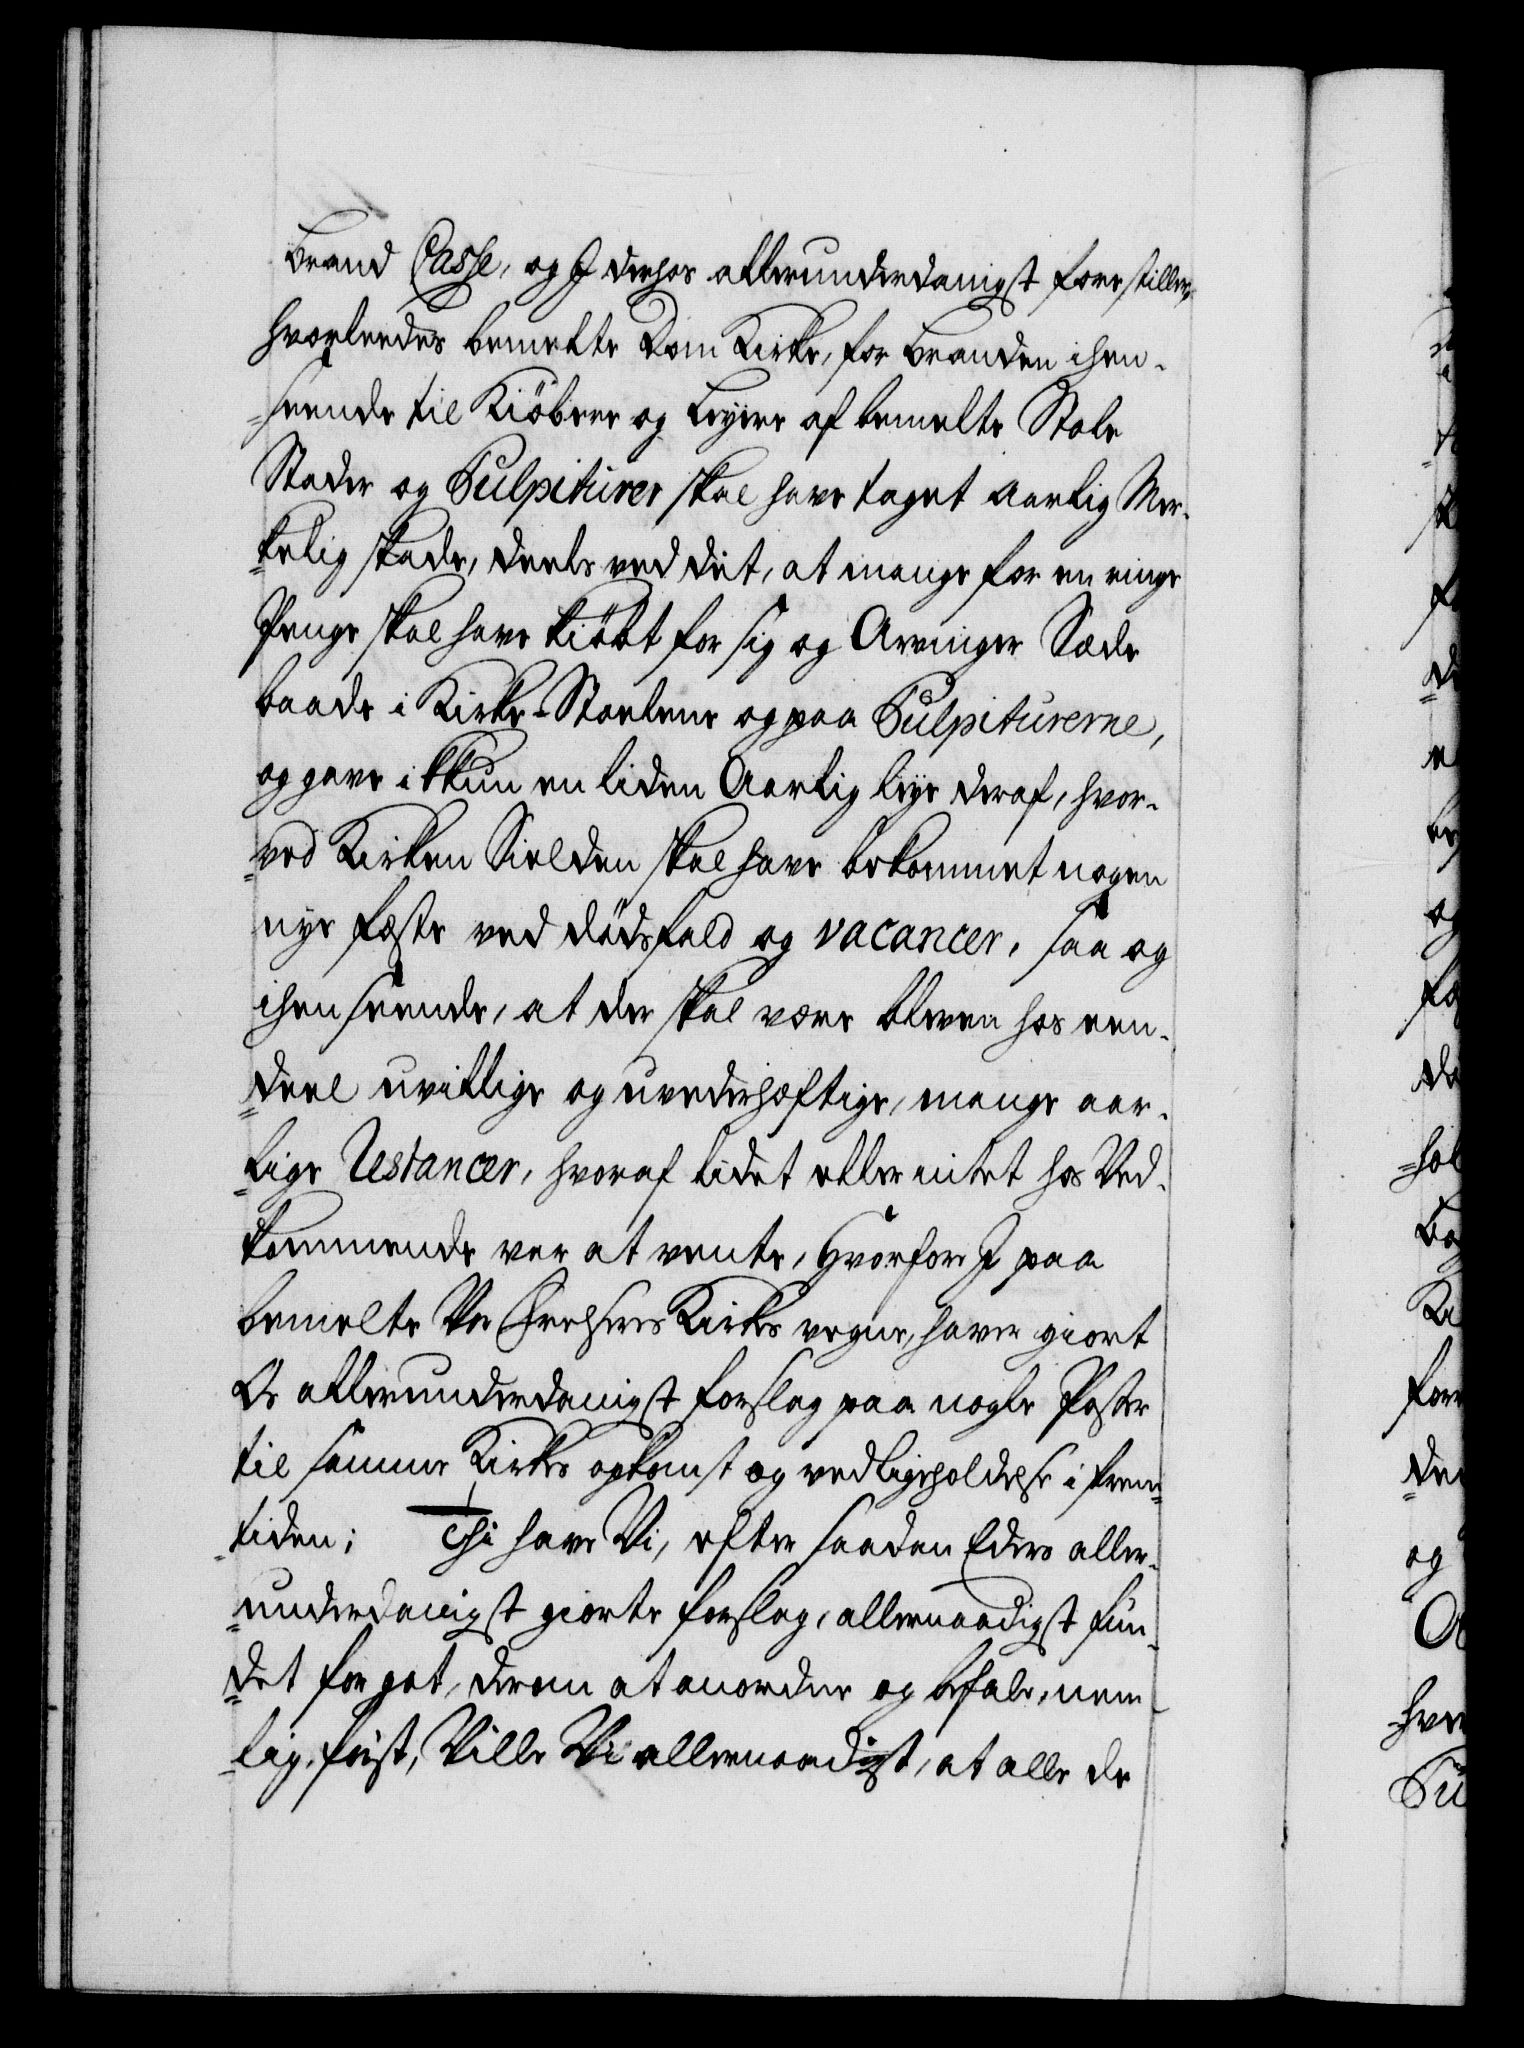 Brand Casse, og I derhos allerunderdanigst forestiller,
hvorleedes bemelte Dom Kirke, for Branden i hen-
seende til Kiöbere og Leyere af bemelte Stole
Stader og Pulpiturer skal have taget aarlig Mer-
kelig skade, deels ved det, at mange for en ringe
Penge skal have kiöbt for sig og Arvinger Sæde
baade i Kirke-Stoelene og paa Pulpiturerne,
og gave ikkun en liden Aarlig leye deraf, hvor-
ved Kirken Sielden skal have bekommet nogen
nye fæste ved dödsfald og vacancer, saa og
i hen seende, at der skal være bleven hos een-
deel uvillige og uvederhæftige, mange aar-
lige Restancer, hvoraf lidet eller intet hos Ved-
kommende var at vente, Hvorfore I paa
bemelte Vor Frelseres Kirkes vegne, haver giort
Os allerunderdanigst forslag paa nogle Poster
til samme Kirkes opkomst og vedligeholdelse i frem-
tiden; Thi have Vi, efter saadan Eders aller-
underdanigst giorte forslag, allernaadigst fun-
det for got, derom at anordne og befale, nem-
lig. först, Ville Vi allernaadigst, at alle de